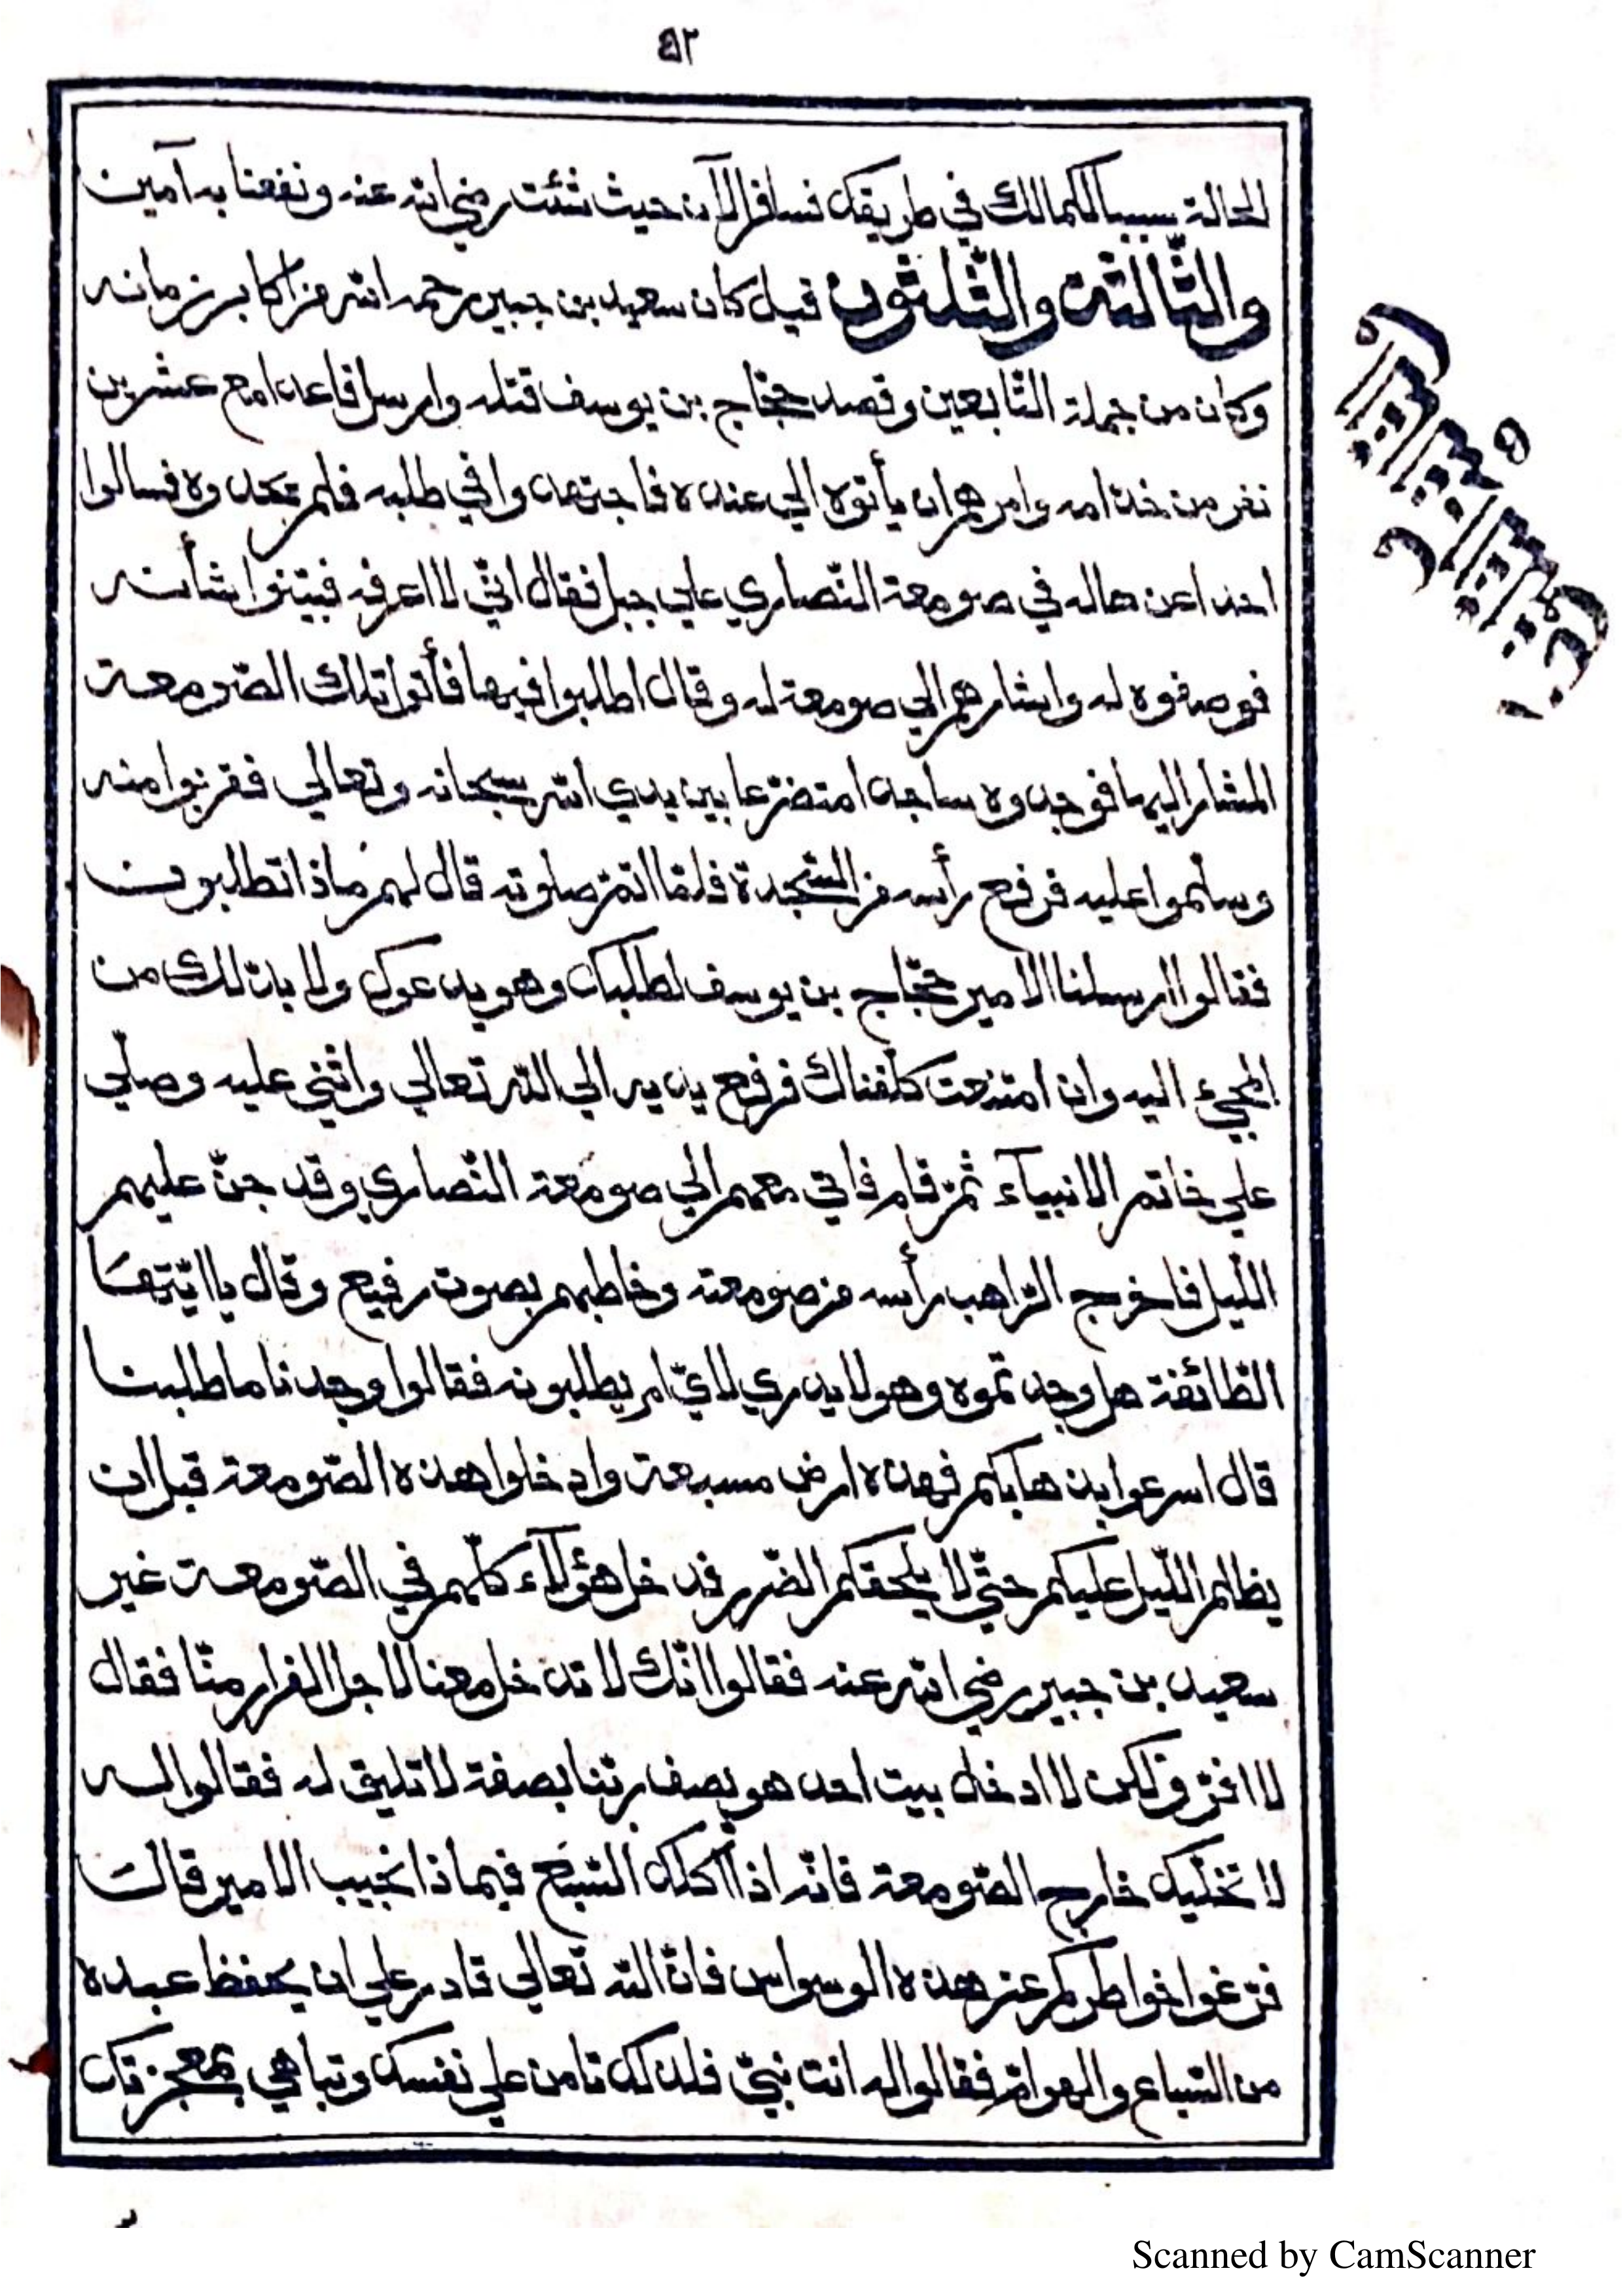 ٥٢
الحالة سببا لكمالك في طريقك فسافر الآن حيث شئت رضي الله عنه ونفعنا به آمين
والثّالثة والثّلثون قيل كان سعيد بن جبير رحمه الله من اكابر زمانه
وكان من جملة التّابعين وقصد حجّاج بن يوسف قتله وارسل قاعدا مع عشرين
نفر من خدامه وامرهم ان يأتوه الي عنده فاجتهدوا في طلبه فلم يجدوه فسالوا
احدا عن حاله في صومعة النّصاري علي جبل فقال انّي لا اعرفه فبيّنوا شأنه
فوصفوه له واشارهم الي صومعة له وقال اطلبوا فيها فأتوا تلك الصّومعة
المشار اليها فوجدوه ساجدا متضرّعا بين يدي الله سبحانه وتعالي فقربوا منه
وسلّموا عليه فرفع رأسه من السّجدة فلمّا اتمّ صلوته قال لهم ماذا تطلبون
فقالوا ارسلنا الامير حجّاج بن يوسف لطلبك وهو يدعوك ولا بدّ لك من
المجيء اليه وان امتنعت كلّفناك فرفع يديه الي الله تعالي واثني عليه وصلّي
علي خاتم الانبيآء ثمّ قام فاتي معهم الي صومعة النّصاري وقد جنّ عليهم
اللّيل فاخرج الرّاهب رأسه من صومعته وخاطبهم بصوت رفيع وقال يا ايّتها
الطّائفة هل وجدتموه وهو لا يدري لايّ امر يطلبونه فقالوا وجدنا ما طلبنا
قال اسرعوا بذهابكم فهذه ارض مسبعة وادخلوا هذه الصّومعة قبل ان
يظلم اللّيل عليكم حتّي لا يلحقكم الضّرر فدخل هؤلآء كلّهم في الصّومعة غير
سعيد بن جبير رضي الله عنه فقالوا انّك لا تدخل معنا لاجل الفرار منّا فقال
لا افرّ ولكن لا ادخل بيت احد هو يصف ربّنا بصفة لا تليق له فقالوا له
لا نخلّيك خارج الصّومعة فانّه اذا اكلك السّبع فبماذا نجيب الامير قال
فرّغوا خواطركم عن هذه الوسواس فانّ الله تعالي قادر علي ان يحفظ عبده
من السّباع والهوامّ فقالوا له انت نبيّ فلذلك تامن علي نفسك وتباهي بمعجزتك
Scanned by CamScanner